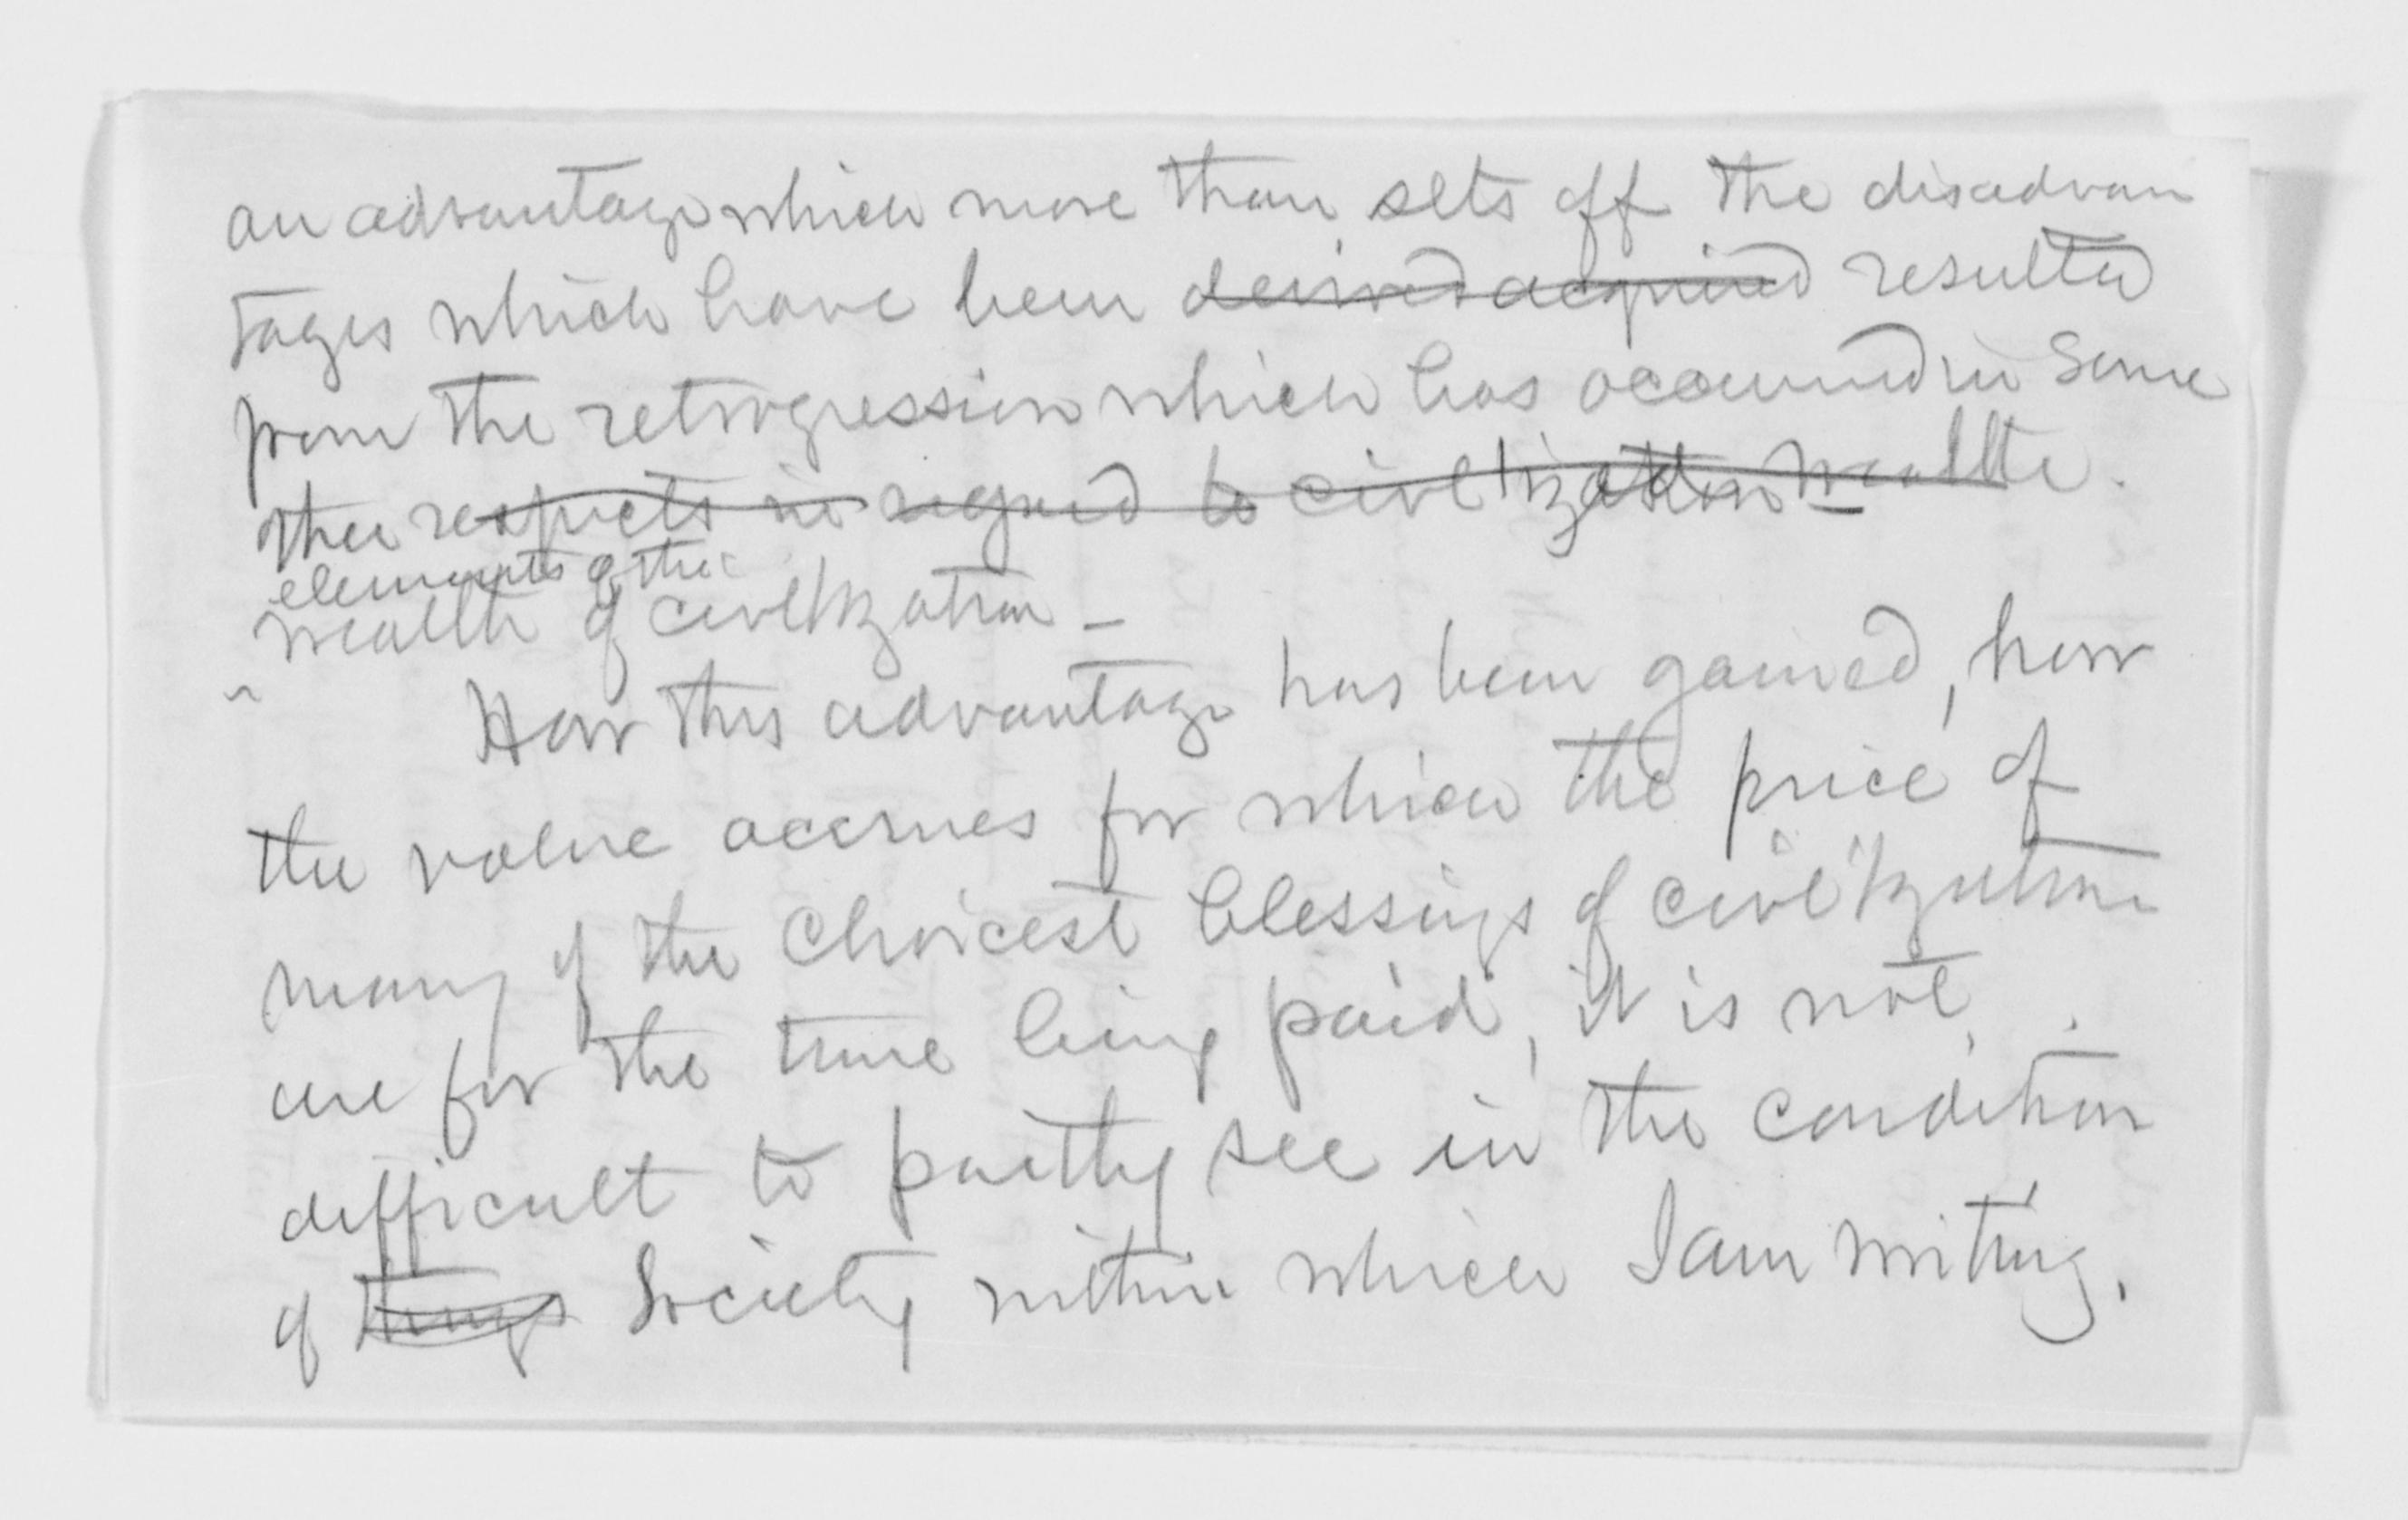 an advantage which more than sets off the disadvan
tages which have been derived acquired resulted
from the retrogression which has occurred in some
other respects in regard to civilization - wealth.
elements of the
wealth of civilization -
How this advantage has been gained, how
the value accrues for which the price of
many of the choicest blessings of civilization
are for the time being paid, it is not
difficult to partly see in the condition
of things Society within which I am writing.